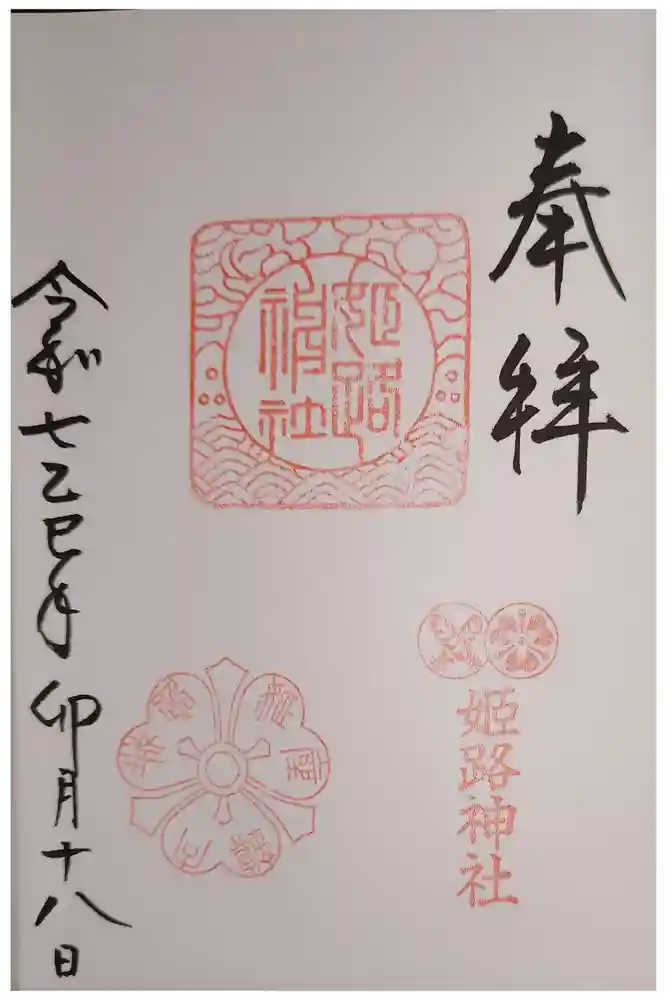 奉拝
姫路
神社
姫路神社
令和七乙巳年卯月十八日